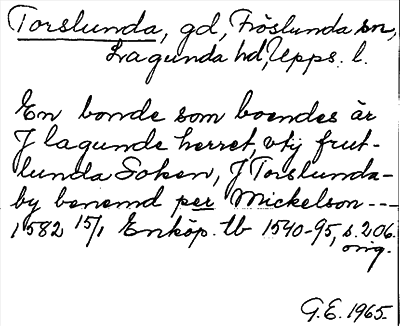 Torslunda, gd, Fröslunda sn,
Lagunda hd, Upps. l.
En bonde som boendes är
J lagunde herret, vtj frut-
lunda Soken, J Torslunda-
by benemd per Mickelson ---
1582 15/1 Enköp. tb 1540-95, s. 206.
orig.
G.E. 1965.